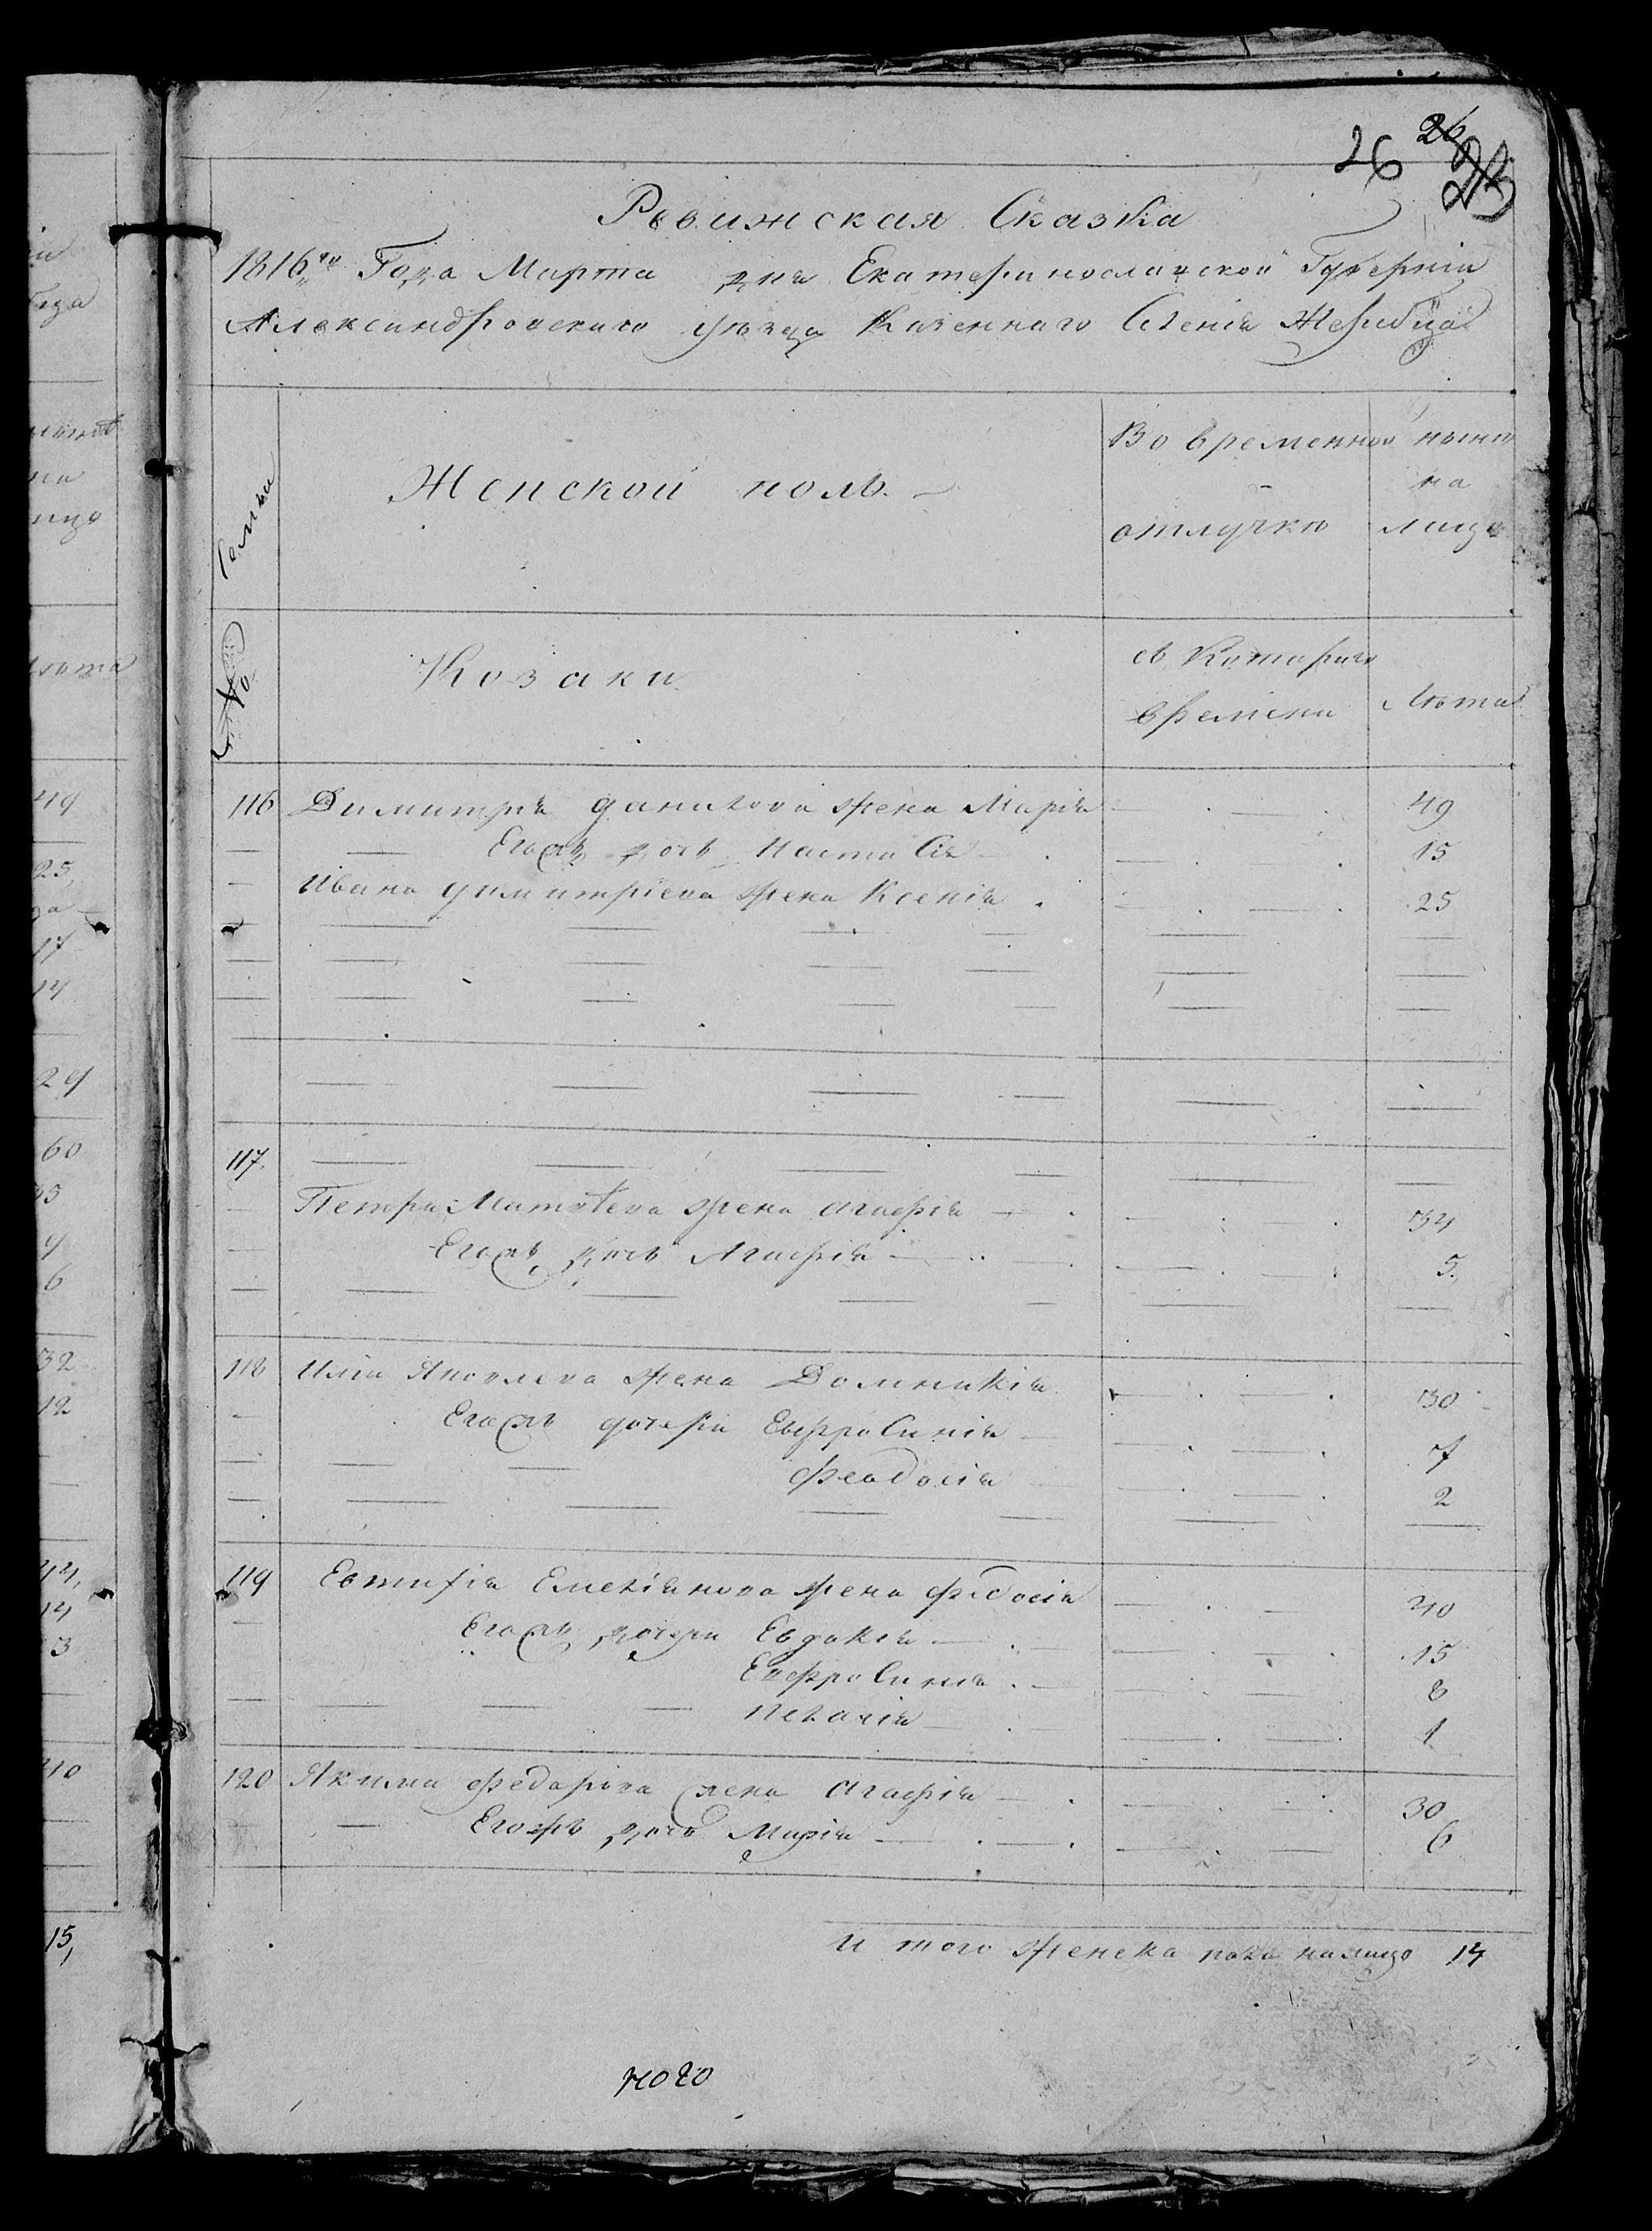 26 26
Ревижская Сказка
1816го Года Марта дня Екатеринославской Губернїи
Александровскаго уѣзда Казеннаго Селенїя Жеребца
Семьи
Женской полъ.
Во временной
отлучкѣ
нынѣ
на
лицо
№
Козаки
съ котораго
времени
Лѣта
116 Димитрия данилова жена Марїя 49
Егожъ дочь Настасїя 15
Ивана димитрїева жена Ксенїя 25
117.
Петра Матвѣева жена агафїя 34
Егожъ дочь Агафїя 5.
118 Илїи Яковлева жена Домникїя 30
Егожъ дочери Евфросинїя 7
Феодосїя 2
119 Евтифїя Емелїянова жена федосїя 40
Егожъ дочери Евдокїя 15
Евфросинїя 8
Пелагїя 1
120 Якима федорова жена Агафїя 30
Егожъ дочь Марїя 6
И того женска пола налицо 14
49
25,
17
14
29
60
35
9
6
32
12
44,
14
3
40
15,